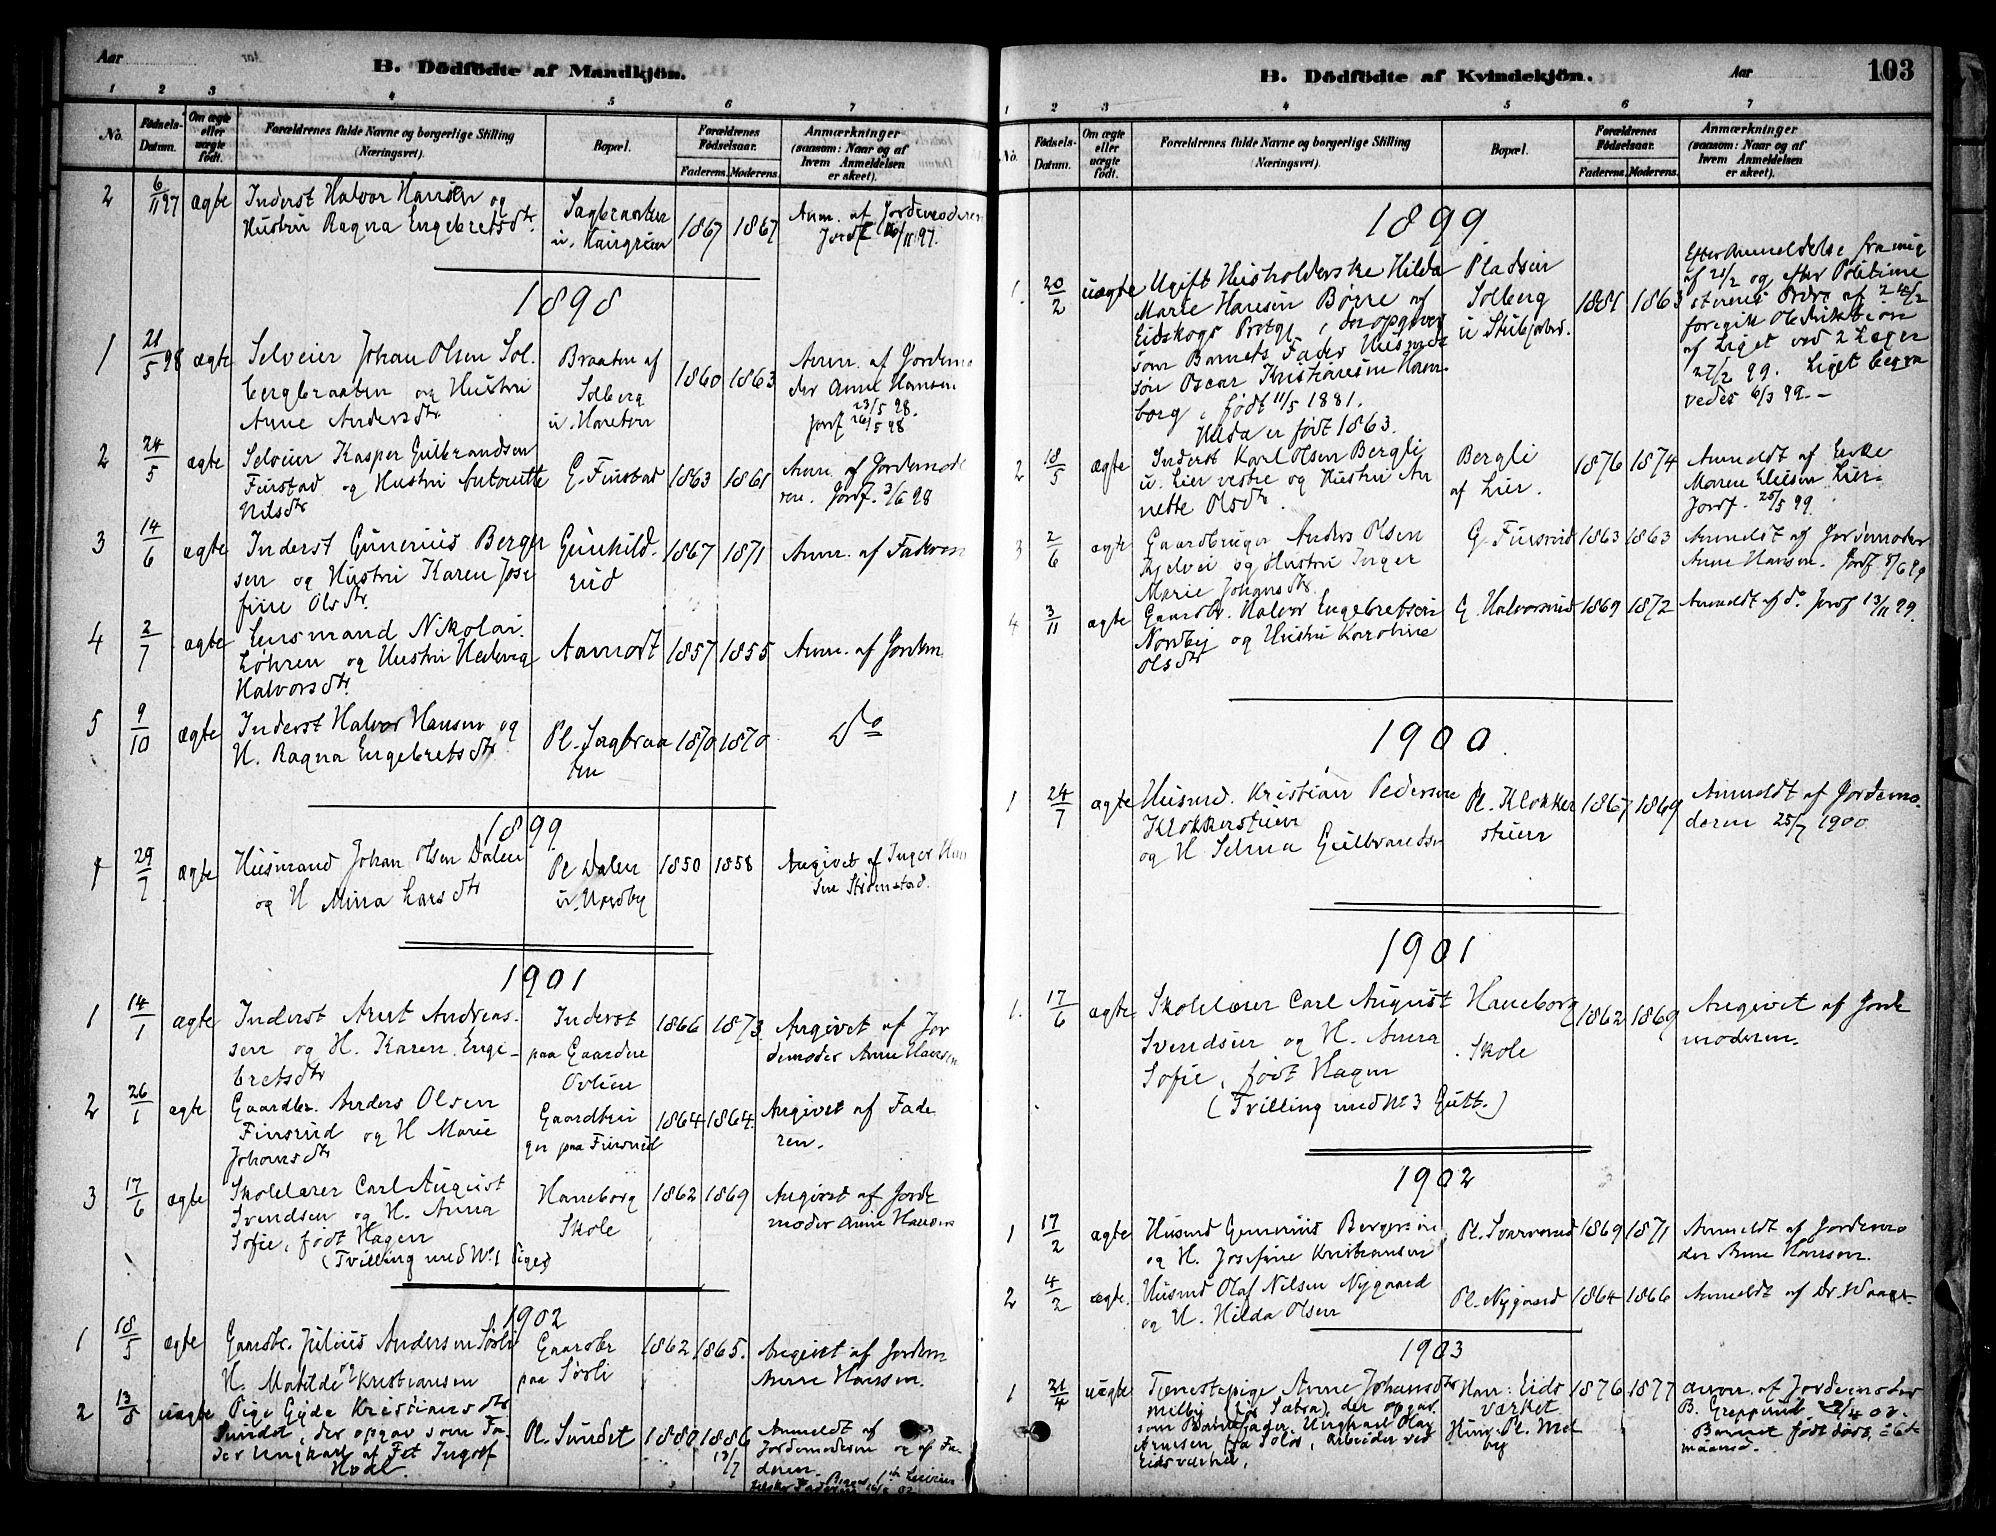 Aar
B. Dödfödte af Mandkjön.
1 2 3 4 5 6 7
No.
Fødsels-Datum.
Om ægte eller uægte født.
Forældrenes fulde Navne og borgerlige Stilling (Næringsvei).
Bopæl.
Forældrenes Fødselsaar.
Faderens. Moderens.
Anmærkninger (saasom: Naar og af hvem Anmeldelsen er skeet).
2 6/11 97 ægte Inderst Halvor Hansen og Sagbraaten 1867 1867 Anm. af Jordemoderen
Hustru Ragna Engebretsdtr.
1898
1 21/5 98 ægte Selveier Johan Olsen Sol- Braaten af 1860 1863 Anm. af Jordemo
bergbraaten og Hustru Solberg der Anne Hansen
Anne Andersdtr 23/5 98.
Jordf 26/5 98
2 24/5 ægte Selveier Kasper Gulbrandsen G. Finstad 1863 1861 Anm. af Jordemode
Finstad og Hustru Antonette ren. Jordf. 3/6 98
Nilsdtr
3 14/6 ægte Inderst Gunerius Berger Gunhilds- 1867 1871 Anm. af Faderen
sen og Hustru Karen Jose rud
fine Olsdtr.
4 2/7 ægte Lensmand Nikolai Aamodt 1857 1855 Anm. af Jordem
Løhren og Hustru Hedevig
Halvorsdtr.
5 9/10 ægte Inderst Halvor Hansen og Pl. Sagbraa 1870 1870 Do
H. Ragna Engebretsdtr ten
1899
1 29/7 ægte Husmand Johan Olsen Dalen Pl Dalen 1850 1858 Angivet af Inger Han
og H Mina Larsdtr u. Nordby sen Strømstad.
1901
1 14/1 ægte Inderst Arnt Andreas- Inderst 1866 1873 Angivet af Jor
sen og H. Karen Enge- paa Gaarden demoder Anne Hansen
bretsdtr
2 26/1 ægte Gaardbr. Anders Olsen Gaardbru 1864 1864 Angivet af Fade
Finsrud og H Marie ger paa Finsrud ren.
Johansdtr
3 17/6 ægte Skolelærer Carl August Haneborg 1862 1869 Angivet af Jorde
Svendsen og H. Anna Skole moder Anne Hansen
Sofie, født Hagen
(Tvilling med No 1 Pige)
1902
1 18/5 ægte Gaardbr. Julius Andersen Sørli Gaardbr 1862 1865. Angivet af Jordem
H. Matilde Kristiansen paa Sørli Anne Hansen.
2 13/8 uægte Pige Gyda Kristiansdtr Pl. Sundet 1880 1886 Anmeldt af
Sundet, der opgav som Fa- Jordemoderen og af Fa-
der Ungkarl af Fet Ingolf deren.
B. Dödfödte af Kvindekjön.
Aar
103
1 2 3 4 5 6 7
No.
Fødsels-Datum.
Om ægte eller uægte født.
Forældrenes fulde Navne og borgerlige Stilling (Næringsvei).
Bopæl.
Forældrenes Fødselsaar.
Faderens. Moderens.
Anmærkninger (saasom: Naar og af hvem Anmeldelsen er skeet).
1899
1. 20/2 uægte Ugift Husholderske Hilda Pladsen 1881 1863 Efter Anmeldelse fra mig
Marie Hansen Børre af Solberg af 21/2 og efter Politime
Eidskogs Prstgj, der opgiver sterens Ordre af 24/2
som Barnets Fader Husmds foregik Obduktion
søn Oscar Kristiansen Ham- af Liget ved 2 Læger
borg, født 11/5 1881. 27/2 99. Liget begra
Hilda er født 1863. vedes 6/3 99.
2 18/5 ægte Inderst Karl Olsen Bergli Bergli 1876 1874 Anmeldt af Enke
u. Lier vestre og Hustru An af Lier. Maren Lier.
nette Olsdtr. Jordf. 25/5 99.
3 2/6 ægte Gaardbruger Anders Olsen G. Finsrud 1863 1863 Anmeldt af Jordemoder
og Hustru Inger Anne Hansen. Jordf. 8/6 99
Marie Johansdtr.
4 3/11 ægte Gaardbr. Halvor Engebretsen G. Halvorsrud 1869 1872 Anmeldt af do Jordf 13/11 99.
Nordby og Hustru Karoline
Olsdtr
1900
1 24/7 ægte Husmd. Kristian Pedersen Pl. Klokker 1867 1869 Anmeldt af Jordemo-
Klokkerstuen stuen deren 25/7 1900
og H Selma Gulbrandsdtr
1901
1. 17/6 ægte Skolelærer Carl August Haneborg 1862 1869 Angivet af Jorde
Svendsen og H. Anna Skole moderen.
Sofie, født Hagen
(Tvilling med No 3 Gutt.)
1902
1 17/2 ægte Husmd Gunerius Bergersen Pl. Svarverud 1869 1871 Anmeldt af Jordemo
og H. Josefine Kristiansen der Anne Hansen.
2 4/2 ægte. Husmd Olaf Nilsen Nygaard Pl. Nygaard 1864 1866 Anmeldt af Dr.
og H. Hilda Olsen
1903
1 21/4 uægte Tjenestepige Anne Johansdtr Han: Eids 1876 1877 anm. af Jordemoder
Melby der opgav værket B.
som Barnefader Ungkarl Olaf Hun: Pl. Mel Barnet født dødt,
Arnesen fra Solør, arbeider ved by
Eidsværket.